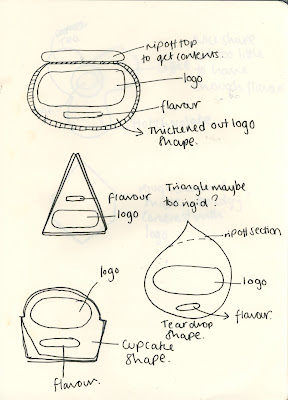 rip off top
to get contents.
logo
flavour
Thickened out logo
shape.
flavour
logo
Triangle maybe
too rigid?
rip off section
logo
flavour.
Teardrop
shape.
logo
Cupcake
shape.
flavour.